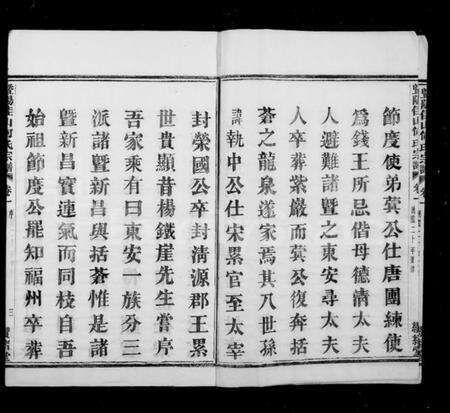 節度使弟莢公仕唐團練使
為錢王所忌偕母德清太夫
人避難諸暨之東安尋太夫
人卒葬紫嚴而莢公復奔括
蒼之龍泉遂家焉其八世孫
諱執中公仕宋累官至太宰
封榮國公卒封清源郡王累
世貴顯昔楊鐵崖先生嘗序
吾家乘有曰東安一族分三
派諸暨新昌與括蒼惟是諸
暨新昌實連氣而同枝自吾
始祖節度公罷知福州卒葬
暨陽 山何氏宗譜 卷一 序
三